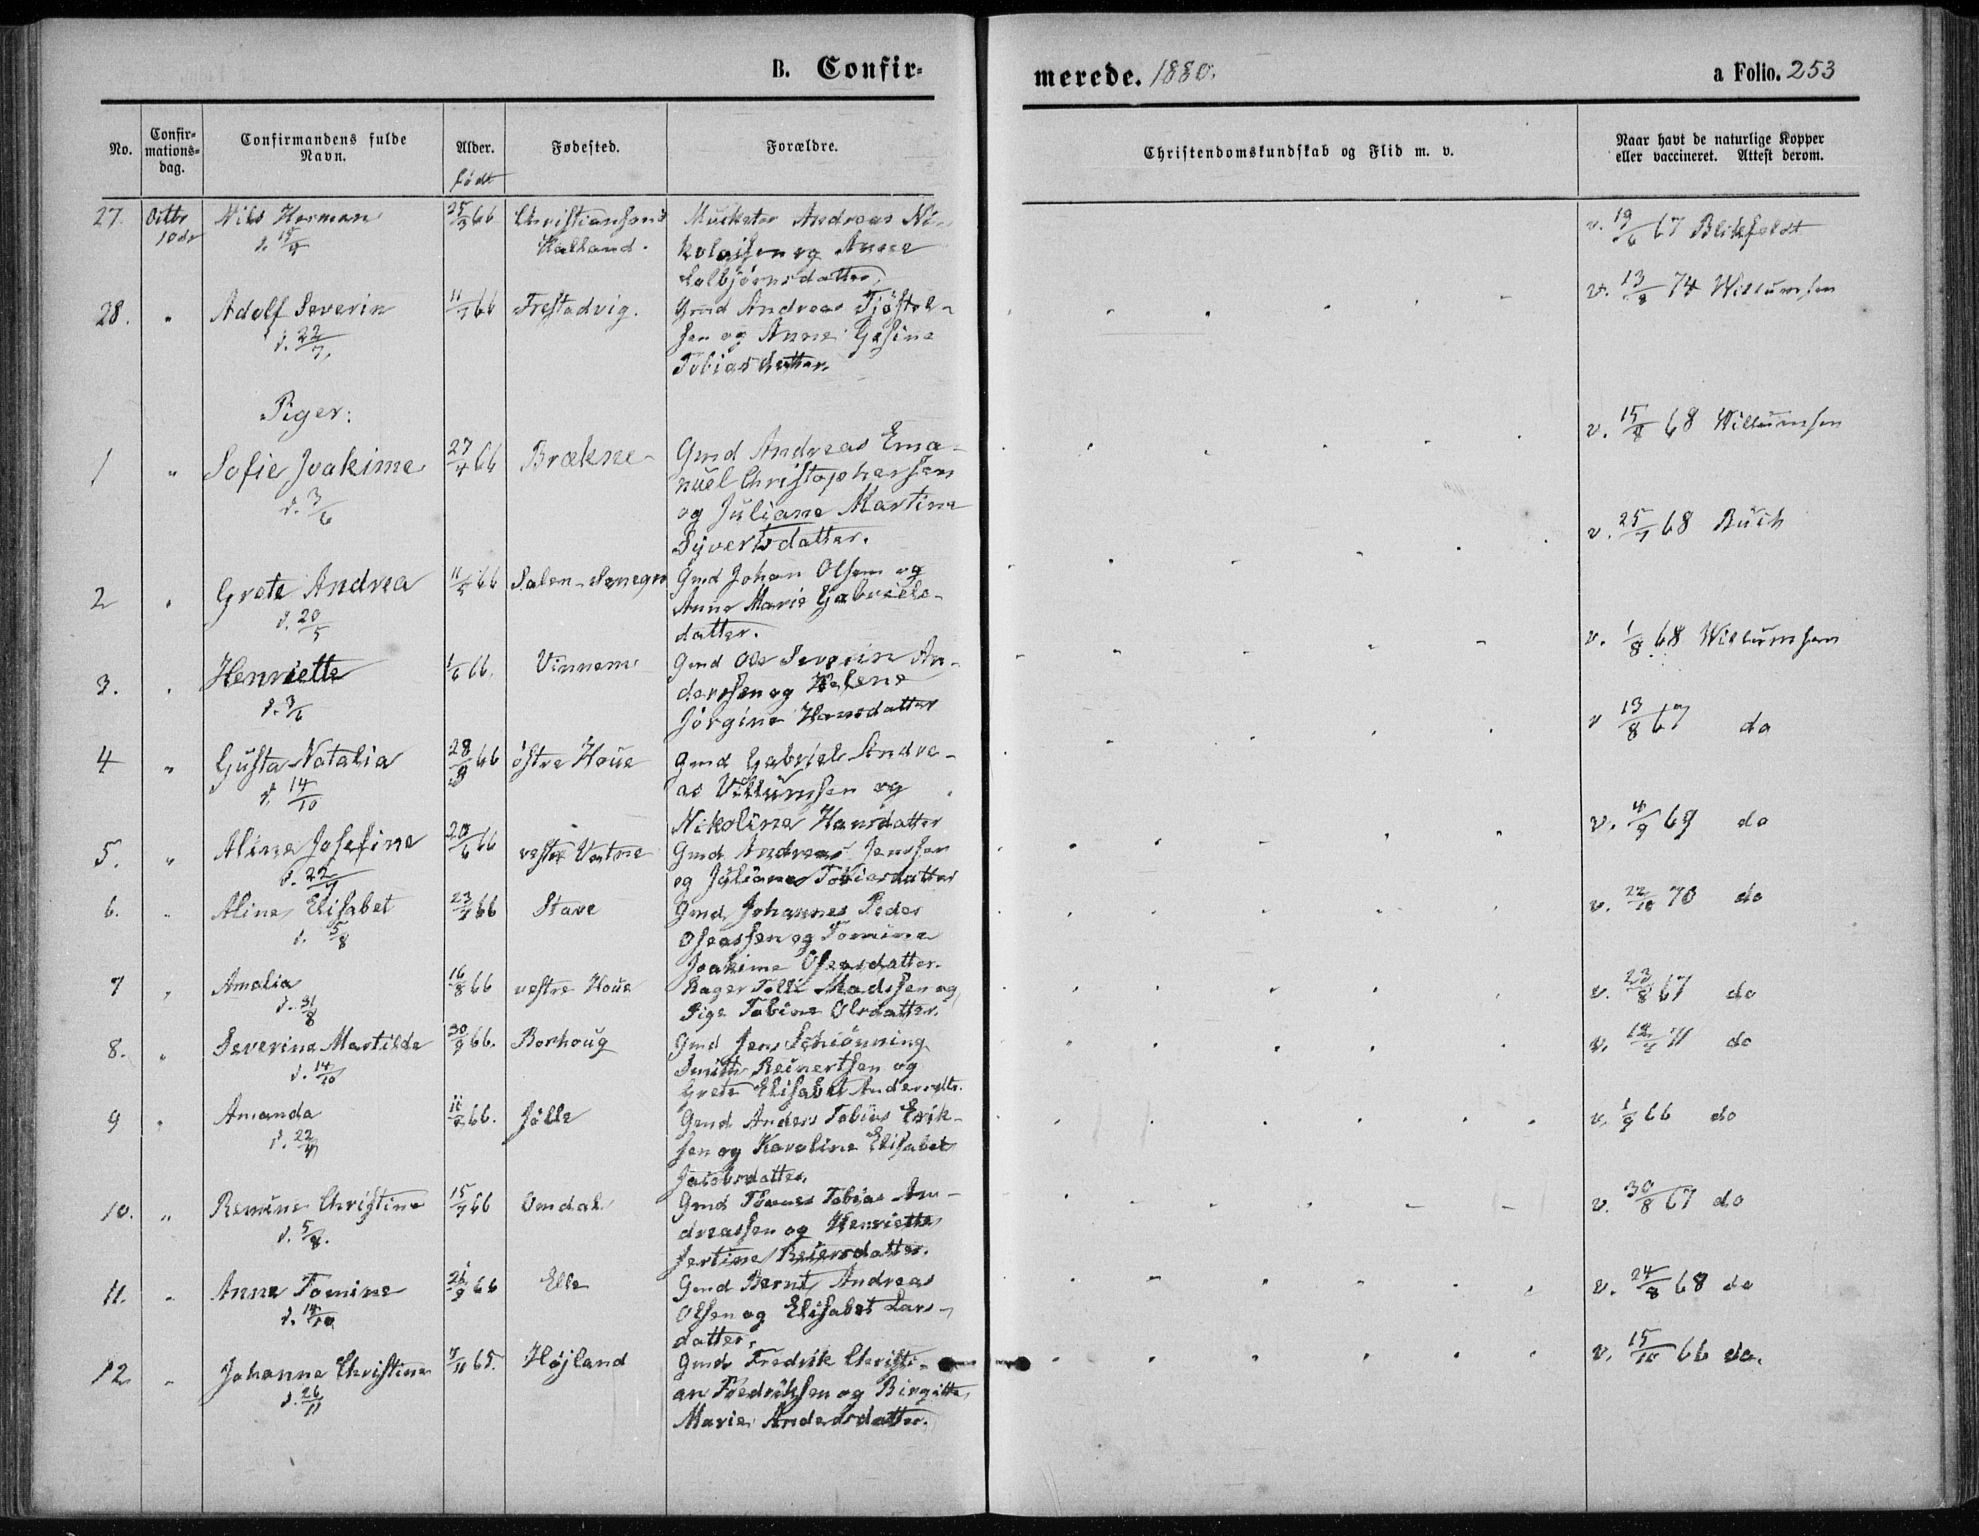 B. Confir=
merede. 1880.
a Folio. 253
No.
Confir=
mations=
dag.
Confirmandens fulde
Navn.
Alder.
født
Fødested.
Forældre.
Christendomskundskab og Flid m. v.
Naar havt de naturlige Kopper
eller vaccineret. Attest derom.
27. Octbr Nils Herman 25/3 66 Christiansand Andreas Ni-
10de d. Halland. kolaisen og Anne
datter
v. 19/6 67 Blikfeldt
28. " Adolf Severin 11/7 66 Frestadvig. Gmd Andreas Tjøstol-
d. 22/7. sen og Anne Gesine
Tobiasdatter.
v. 13/8 74 Willumsen
Piger:
1 " Sofie Joakime 27/4 66 Brækne Gmd Andreas Ema-
d. 3/6 nuel Christophersen
og Juliane Martine
Syvertsdatter.
v. 15/8 68 Willumsen
2 " Grete Andrea 11/5 66 Salen Gmd Johan Olsen og
d. 20/5 Anne Marie Gabriels-
datter.
v. 25/7 68 Buch
3. " Henriette 1/6 66. Vinnem Gmd Ole Severin An-
d. 3/6 dersen og Helene
Jørgine Hansdatter
v. 1/8 68 Willumsen
4 " Gusta Natalia 28/9 66 østre Houe Gmd Gabriel Andre-
d. 14/10 as Villumsen og
Nikoline Hansdatter
v 13/8 67 do
5. " Aline Josefine 20/6 66 vestre Vatne Gmd Andreas Jenssen
d. 22/7 og Juliane Tobiasdatter
v. 4/9 69 do
6. " Aline Elisabet 23/7 66 Stave Gmd Johannes Peder
d. 5/8 Oseassen og Tomine
Joakime Oseasdatter.
v. 22/10 70 do
7 " Amalia 16/8 66 vestre Houe Madssen og
d. 31/8 Pige Tobine Olsdatter.
v. 23/8 67 do
8. " Severine Martilde 30/9 66. Borhoug Gmd Jens Schiønning
d. 14/10 Smith Reinertsen og
Grete Elisabet Andersdtr.
v. 71 do
9 " Amanda 66. Jølle Gmd Anders Tobias Erik-
d. 22/4 sen og Karoline Elisabet
Jacobsdatter.
v. 1/9 66 do
10. " Christine 15/7 66 Omdal Gmd Tønnes Tobias An-
d. 5/8. dreassen og Henriette
Jertine Reiersdatter.
v. 30/8 67 do
11. " Anne Tomine 21/9 66 Elle Gmd Bernt Andreas
d. 14/10 Olsen og Elisabet Lars-
datter.
v. 24/8 68 do
12 " Johanne Christine 7/11 65. Højland Gmd Fredrik Christi-
d. 26/11 an Fredriksen og Birgitte
Marie Andersdatter.
v. 15/10 66 do.